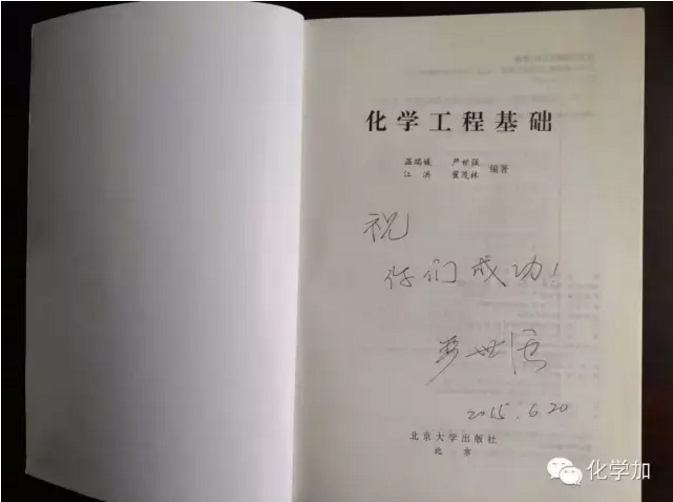 化学工程基础
温瑞媛 严世强
江 洪 翟茂林 编著
祝
你们成功！
严世强
2015.6.20
北京大学出版社
北 京
化学加